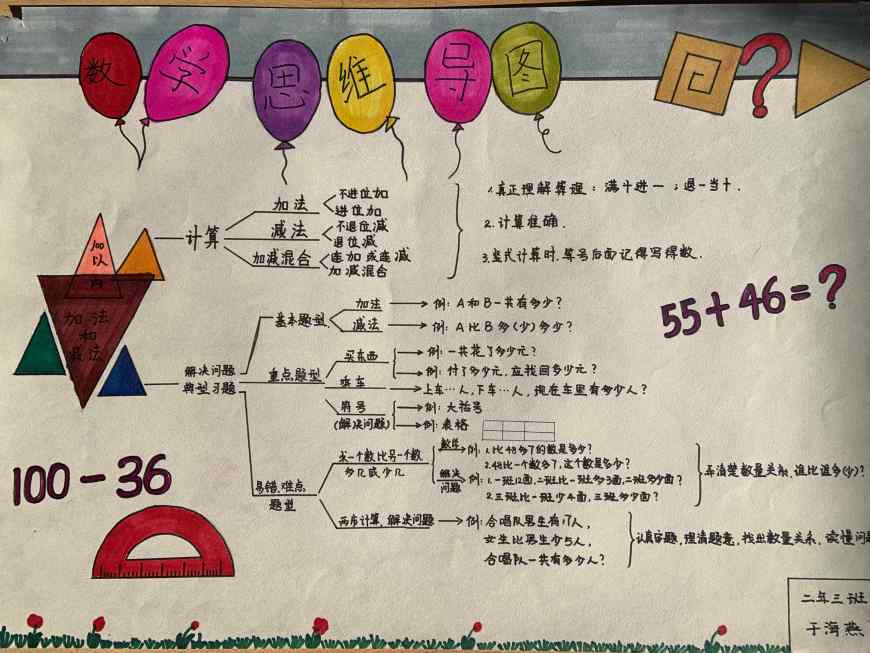 数学思维导图
100以内
加法和减法
计算
加法
不进位加
进位加
减法
不退位减
退位减
加减混合
连加或连减
加减混合
1.真正理解算理:满十进一;退一当十.
2.计算准确.
3.竖式计算时.等号后面记得写得数.
55+46=?
解决问题
典型习题
基本题型.
加法
例: A和B一共有多少?
减法
例: A比B多(少)多少?
重点题型
买东西
例:一共花了多少元?
例:付了多少元,应找回多少元?
乘车
上车…人,下车…人,现在车里有多少人?
符号
(解决问题)
例:大括号
例:表格
易错.难点
题型
求一个数比另一个数
多几或少几
例: 1.比48多7的数是多少?
2.48比一个数多7,这个数是多少?
解决
问题
例: 1.一班12面,二班比一班多3面,二班多少面?
2.三班比一班少4面,三班多少面?
弄清楚数量关系,谁比谁多(少)?
两步计算,解决问题
例:合唱队男生有17人,
女生比男生少5人,
合唱队一共有多少人?
认真审题,理清题意,找出数量关系,读懂问
100-36
二年三班
于海燕